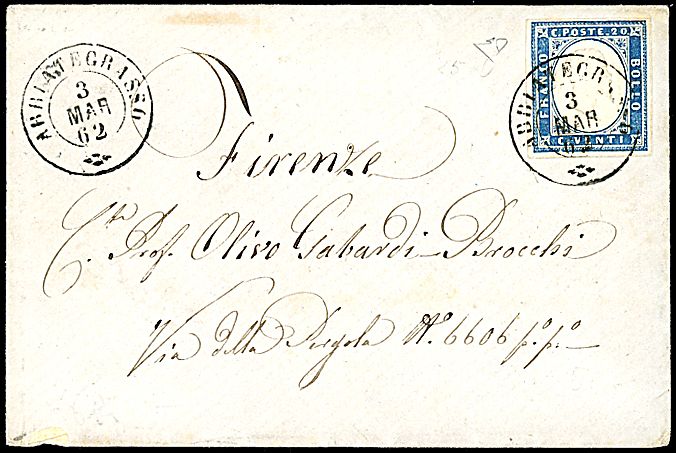 ABBIATEGRASSO
3
MAR
62
C. POSTE. 20
FRANCO
BOLLO
C. VENTI
ABBIATEGRASSO
3
MAR
62
Firenze
Prof. Olivo Gabardi-Brocchi
Via della Pergola N.º 6606 p.º p.º